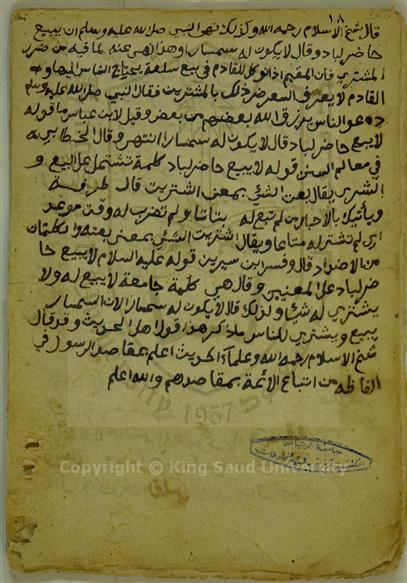 ١٨
قال شيخ الاسلام رحمه الله وكذلك نهى النبي صلى الله عليه وسلم ان يبيع
حاضر لباد وقال لا يكون له سمسارا وهذا نهى عنه لما فيه من ضرر
المشتري فان المقيم اذا توكل للقادم في بيع سلعة يحتاج الناس اليها و
القادم لا يعرف السعر ضر ذلك بالمشترين فقال النبي صلى الله عليه وسلم
دعو الناس يرزق الله بعضهم من بعض وقيل لابن عباس ما قوله
لا يبيع حاضر لباد قال لا يكون له سمسارا انتهى وقال الخطابي
في معالم السنن قوله لا يبيع حاضر لباد كلمة تشتمل على البيع و
الشرى يقال بعت الشي بمعنى اشتريت قال طرفة
وياتيك بالاخبار من لم تبع له بتاتا ولم تضرب له وقت موعد
اي لم تشتر له متاعا ويقال اشتريت الشي بمعنى بعته والكلمتان
من الاضداد قال وفسر ابن سيرين قوله عليه السلام لا يبيع حا
ضر لباد على المعنيين وقال هي كلمة جامعة لا يبيع له ولا
يشتري له شيئا وكذلك قال لا يكون له سمسارا لان السمسار
يبيع ويشتري للناس ما ذكر هذا قول اهل الحديث وقد قال
شيخ الاسلام رحمه الله وعلماء الحديث اعلم بمقاصد الرسول في
الفاظه من اتباع الائمة بمقاصدهم والله اعلم
1957
جامعة الرياض
Copyright © King Saud University